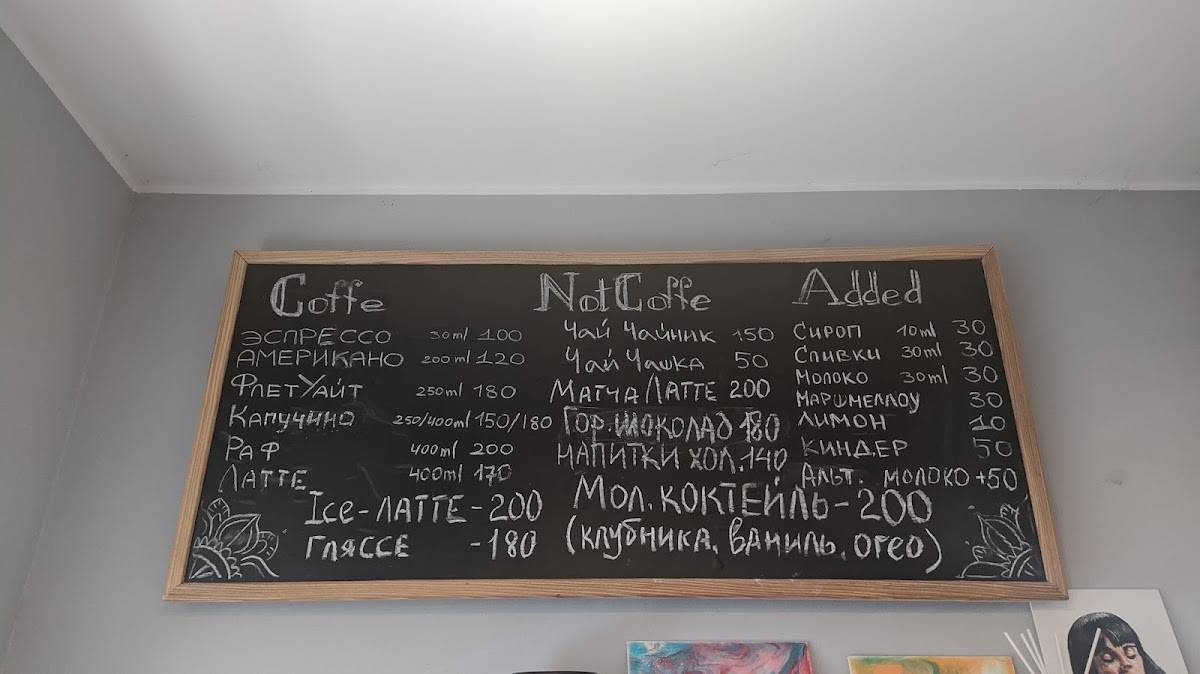 Coffe
ЭСПРЕССО 30ml 100
АМЕРИКАНО 200ml 120
ФлетУайт 250ml 180
Капучино 250/400ml 150/180
Раф 400ml 200
Латте 400ml 170
Ice-ЛАТТЕ - 200
ГЛЯССЕ - 180
NotCoffe
Чай Чайник 150
Чай Чашка 50
Матча Латте 200
ГОР. ШОКОЛАД 180
НАПИТКИ ХОЛ. 140
Мол. КОКТЕЙЛЬ - 200
(клубника, ваниль, oreo)
Added
Сироп 10ml 30
Сливки 30ml 30
Молоко 30ml 30
Маршмеллоу 30
Лимон 10
Киндер 50
Альт. молоко +50